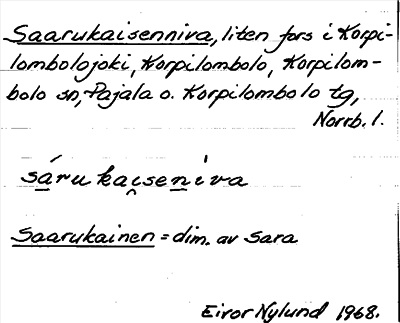 Saarukaisenniva, liten fors i Korpi-
lombolojoki, Korpilombolo, Korpilom-
bolo sn, Pajala o. Korpilombolo tg,
Norrb. l.
sárukai̯seni̍va
Saarukainen = dim. av Sara
Eivor Nylund 1968.